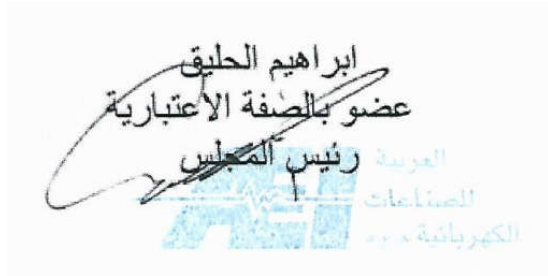 ابراهيم الحليق
عضو بالصفة الاعتبارية
رئيس المجلس
العربية
للصناعات
الكهربائية
AEI